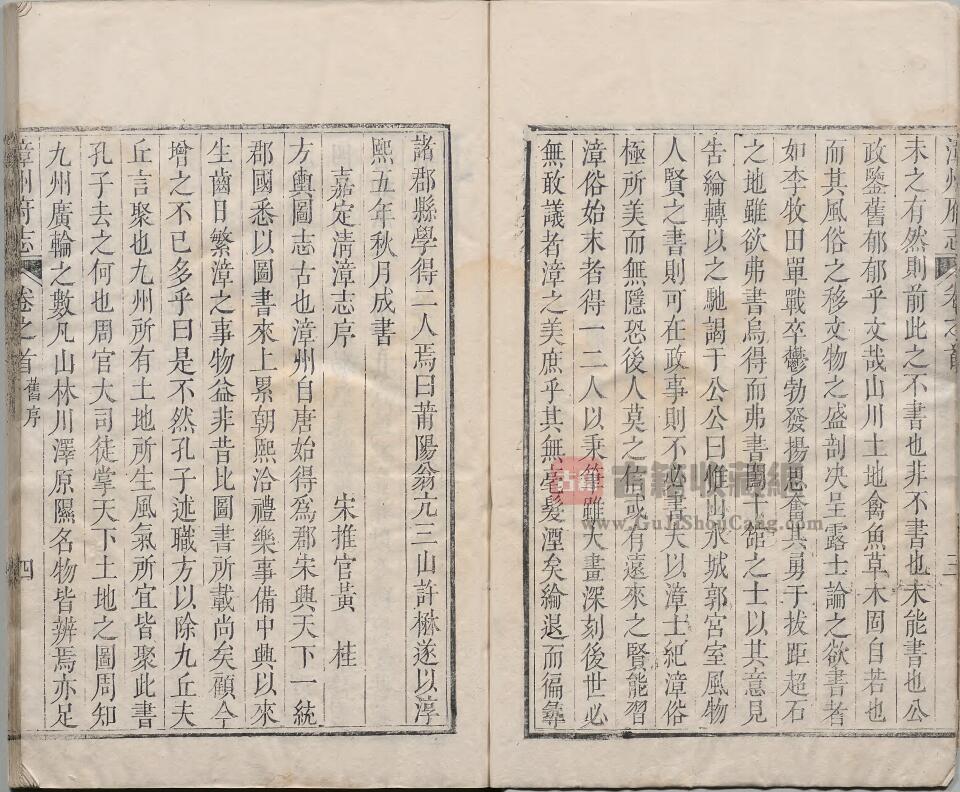 漳州府志 卷之首 三
未之有然則前此之不書也非不書也未能書也公
政鑒舊郁郁乎文哉山川土地禽魚草木固自若也
而其風俗之移文物之盛剖决呈露士論之欲書者
如李牧田單戰卒鬱勃發揚思奮其勇于拔距超石
之地雖欲弗書烏得而弗書聞士館之士以其意見
告綸轉以之馳謁于公公曰惟山水城郭宮室風物
人賢之書則可在政事則不必書夫以漳士紀漳俗
極所美而無隱恐後人莫之信或有遠來之賢能習
漳俗始末者得一二人以秉筆雖大書深刻後世必
無敢議者漳之美庶乎其無毫髮湮矣綸退而徧彝
諸郡縣學得二人焉曰莆陽翁亢三山許楙遂以淳
熙五年秋月成書
嘉定清漳志序 宋推官黃 桂
方輿圖志古也漳州自唐始得爲郡宋興天下一統
郡國悉以圖書來上累朝熙洽禮樂事備中興以來
生齒日繁漳之事物益非昔比圖書所載尚矣顧今
增之不已多乎曰是不然孔子述職方以除九丘夫
丘言聚也九州所有土地所生風氣所宜皆聚此書
孔子去之何也周官大司徒掌天下土地之圖周知
九州廣輪之數凡山林川澤原隰名物皆辨焉亦足
漳州府志 卷之首 舊序 四
古籍收藏網
www.GuJiShouCang.com